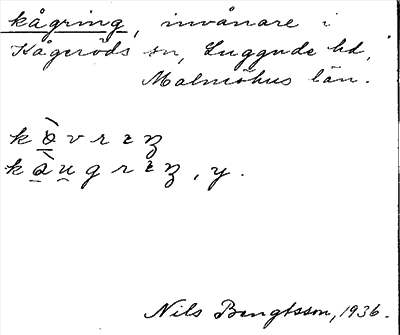 kågring, invånare i
Kågeröds sn, Luggude hd,
Malmöhus län.
kåvrıŋ
kåugrıŋ, y.
Nils Bengtsson, 1936.